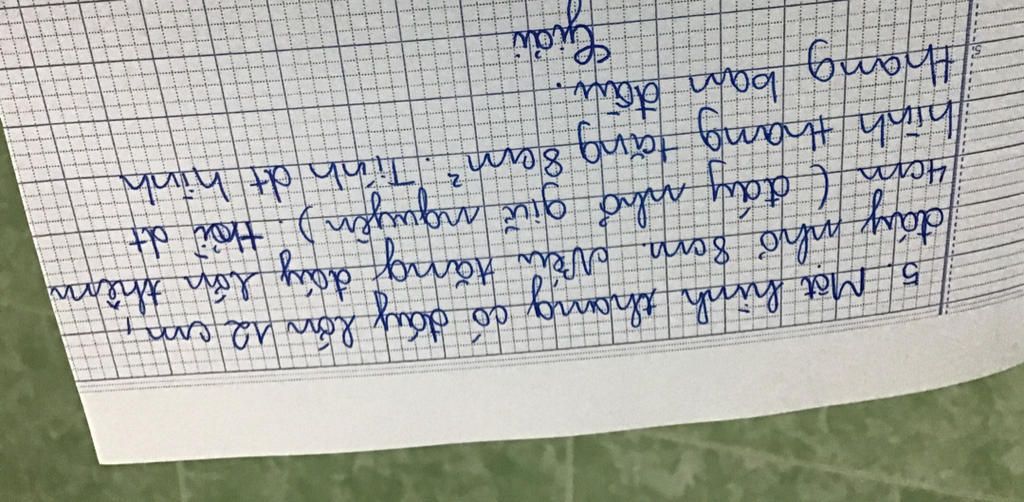 5. Một hình thang có đáy lớn 12 cm,
đáy nhỏ 8cm. Nếu tăng đáy lớn thêm
4cm (đáy nhỏ giữ nguyên). thì dt
hình thang tăng 8cm². Tính dt hình
thang ban đầu.
Giải